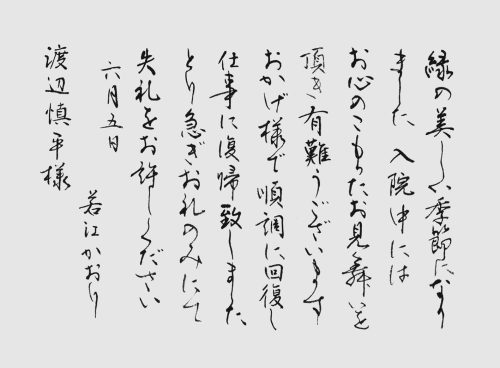 緑の美しい季節になり
ました 入院中には
お心のこもったお見舞いを
頂き有難うございます
おかげ様で順調に回復し
仕事に復帰致しました
とり急ぎお礼のみにて
失礼をお許しください
六月五日
若江かおり
渡辺慎平様